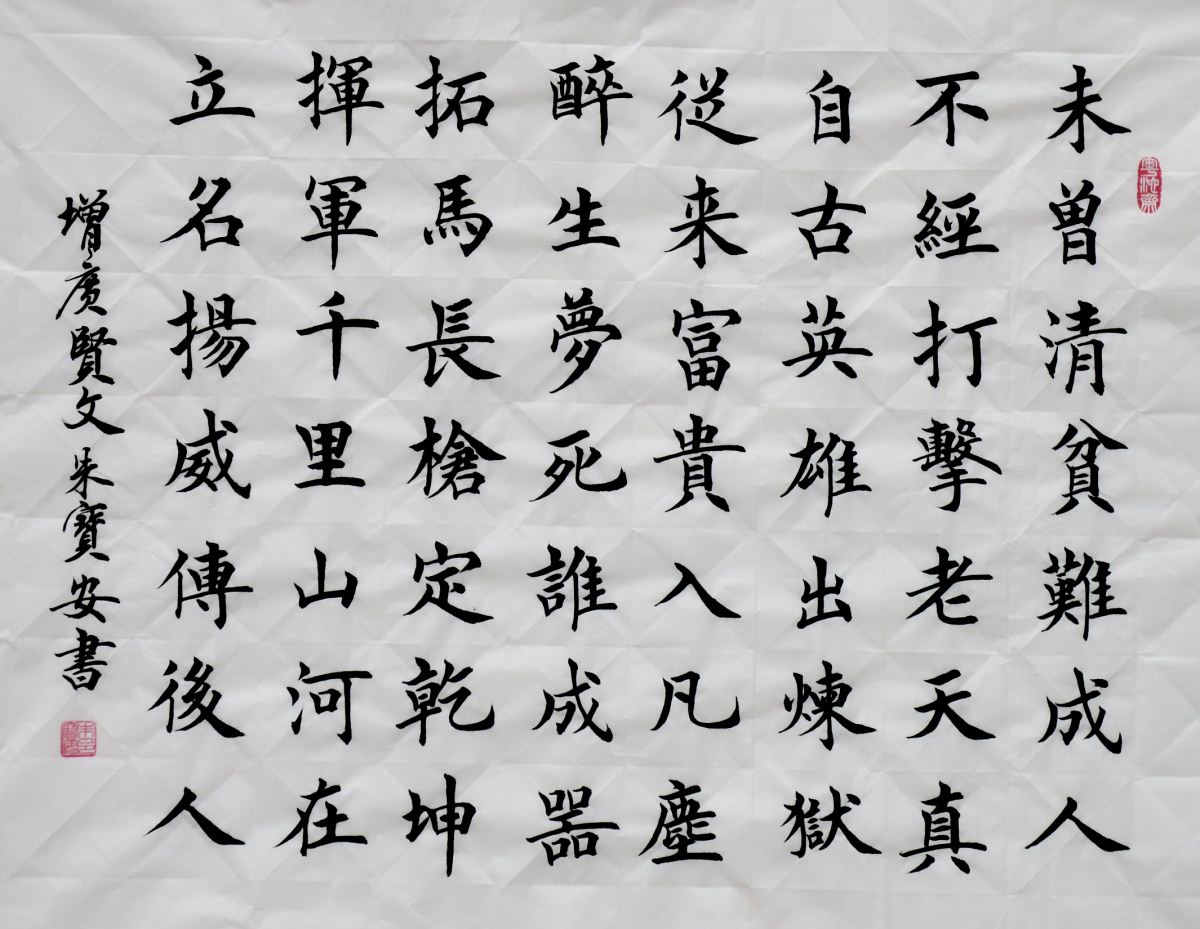 未曾清貧難成人
不經打擊老天真
自古英雄出煉獄
從来富貴入凡塵
醉生夢死誰成器
拓馬長槍定乾坤
揮軍千里山河在
立名揚威傳後人
增廣賢文朱寶安書